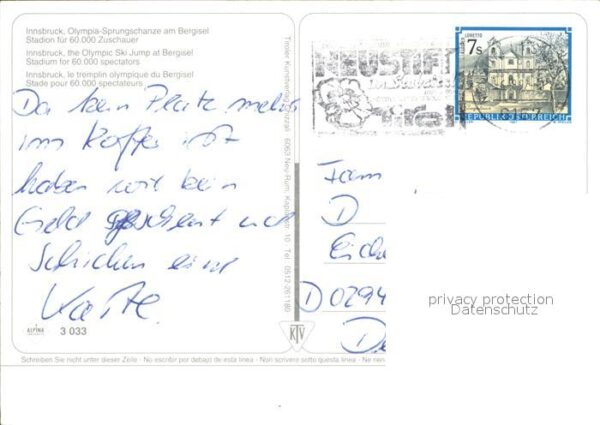 Innsbruck, Olympia-Sprungschanze am Bergisel
Stadion für 60.000 Zuschauer
Innsbruck, the Olympic Ski Jump at Bergisel
Stadium for 60.000 spectators
Innsbruck, le tremplin olympique du Bergisel
Stade pour 60.000 spectateurs
Da kein Platz mehr
im Koffer ist
haben wir kein
Geld gescheut und
schicken eine
Karte.
ALPINA
3 033
Tiroler Kunstverlag
6063 Neu-Rum, Kaplanstr. 10 · Tel. 0512-261180
KTV
Schreiben Sie nicht unter dieser Zeile - No escribir por debajo de esta linea - Non scrivere sotto questa linea - Ne rien
NEUSTIFT
im Stubaital
Tirol
LORETTO
7s
REPUBLIK ÖSTERREICH
Fam
D
Eiche
D 0294
privacy protection
Datenschutz